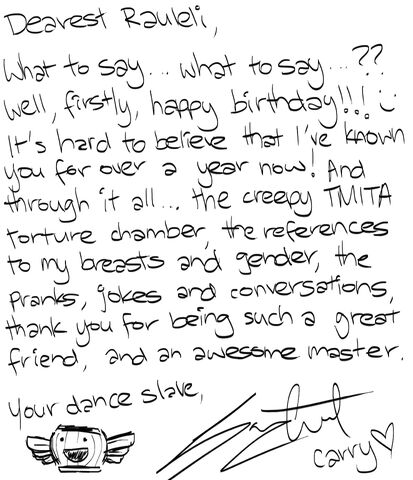 Dearest Rauleli,
What to say... what to say...??
Well, firstly, happy birthday!!! :)
It's hard to believe that I've known
you for over a year now! And
through it all... the creepy TMITA
torture chamber, the references
to my breasts and gender, the
pranks, jokes and conversations,
thank you for being such a great
friend, and an awesome master.
Your dance slave,
carry♡